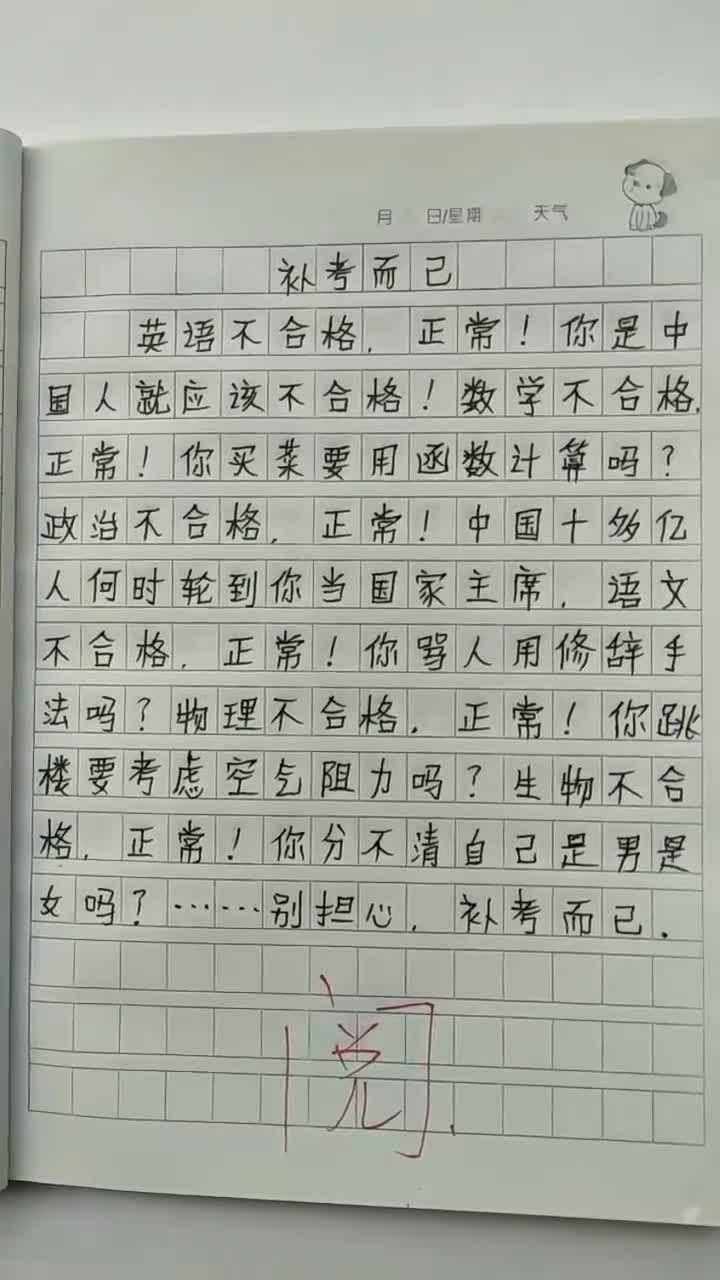 月 日/星期 天气
补考而已
英语不合格. 正常！你是中
国人就应该不合格！数学不合格.
正常！你买菜要用函数计算吗？
政治不合格. 正常！中国十多亿
人何时轮到你当国家主席. 语文
不合格. 正常！你骂人用修辞手
法吗？物理不合格. 正常！你跳
楼要考虑空气阻力吗？生物不合
格. 正常！你分不清自己是男是
女吗？……别担心. 补考而已.
阅.